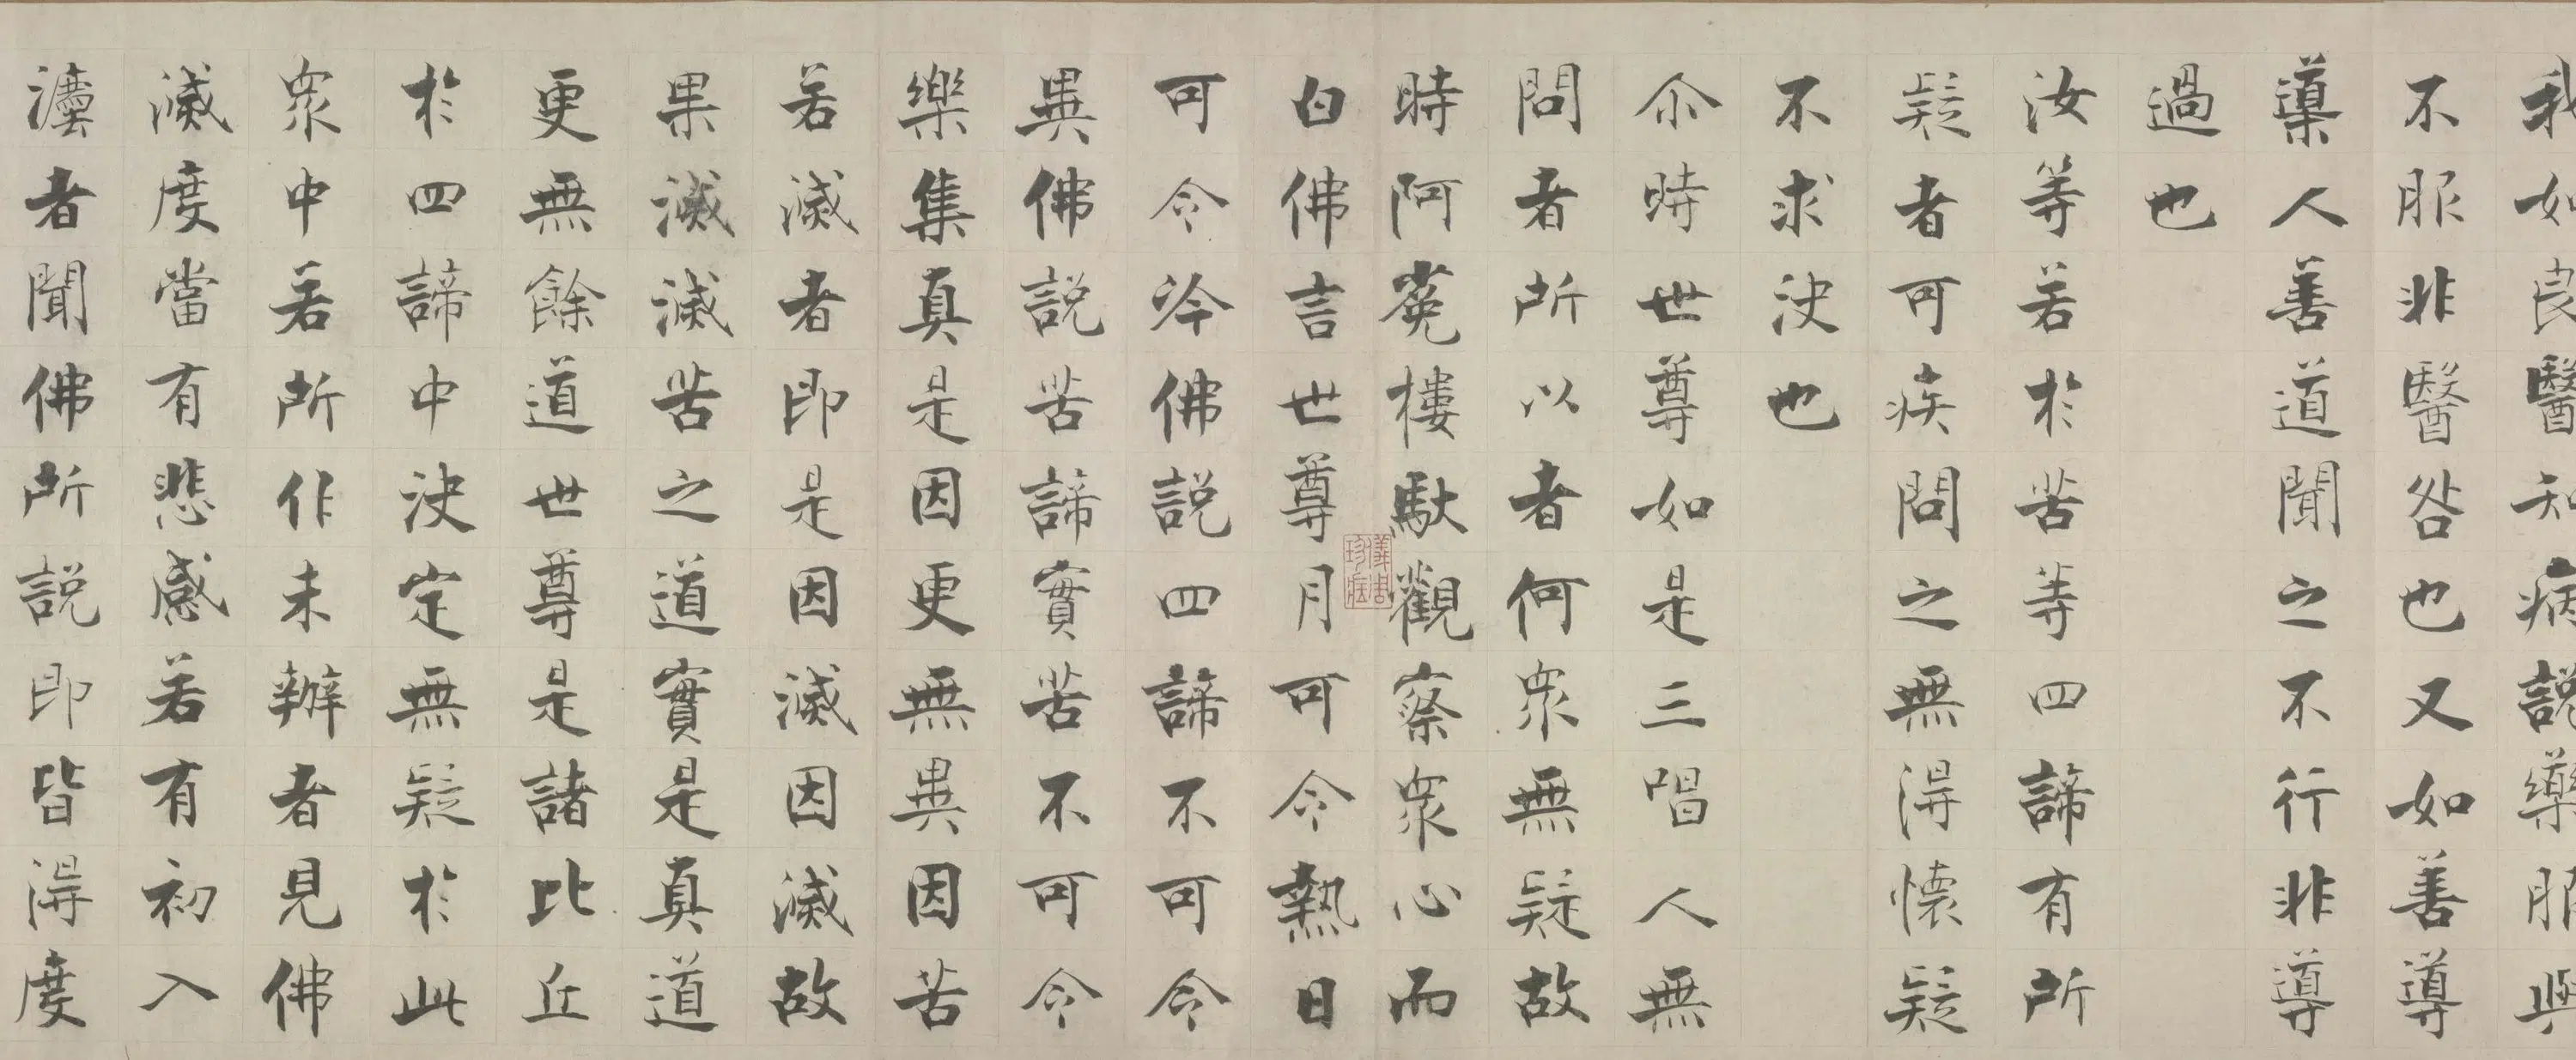 我如良醫知病説藥服與
不服非醫咎也又如善導
導人善道聞之不行非導
過也
汝等若於苦等四諦有所
疑者可疾問之無得懷疑
不求决也
尒時世尊如是三唱人無
問者所以者何衆無疑故
時阿㝹樓馱觀察衆心而
白佛言世尊月可令熱日
可令冷佛説四諦不可令
異佛説苦諦實苦不可令
樂集真是因更無異因苦
若滅者即是因滅因滅故
果滅滅苦之道實是真道
更無餘道世尊是諸比丘
於四諦中决定無疑於此
衆中若所作未辦者見佛
滅度當有悲感若有初入
灋者聞佛所説即皆得度
儀周珍藏